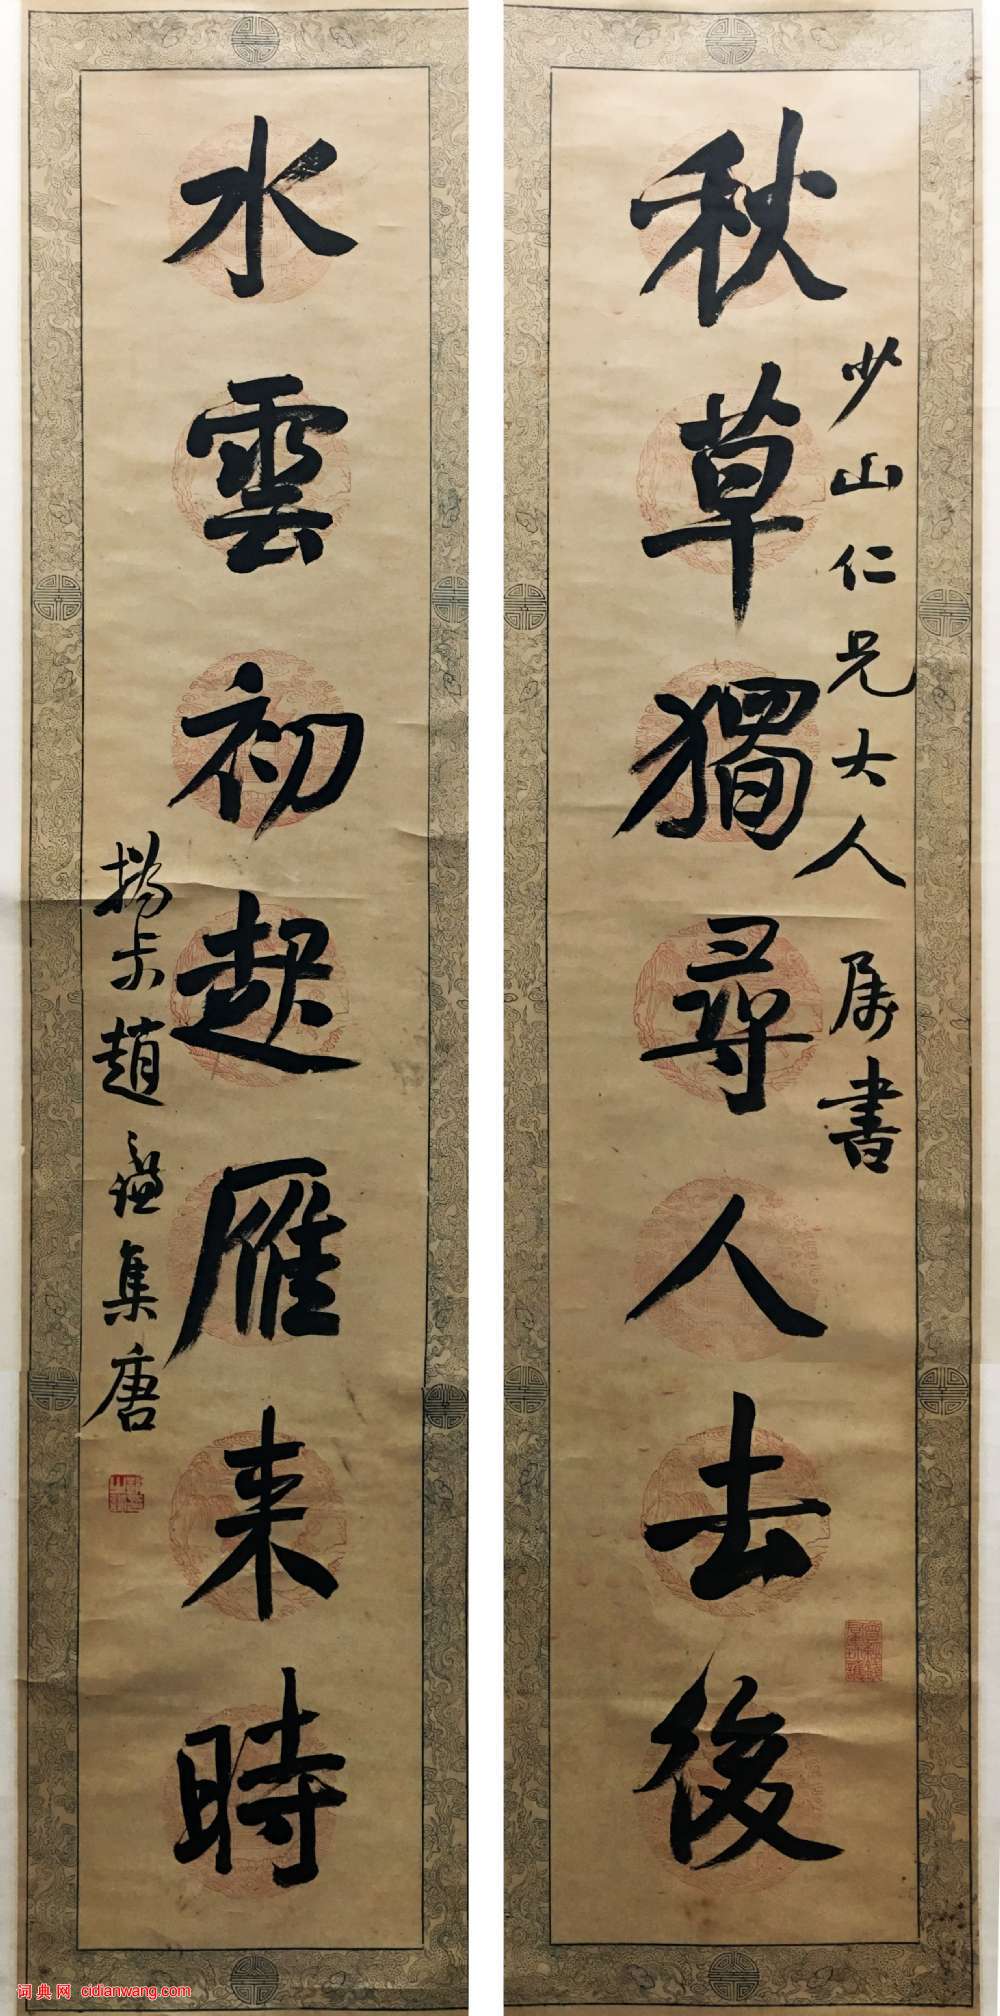 秋草獨尋人去後
少山仁兄大人属書
水雲初起雁来時
撝尗趙之謙集唐
词典网 cidianwang.com